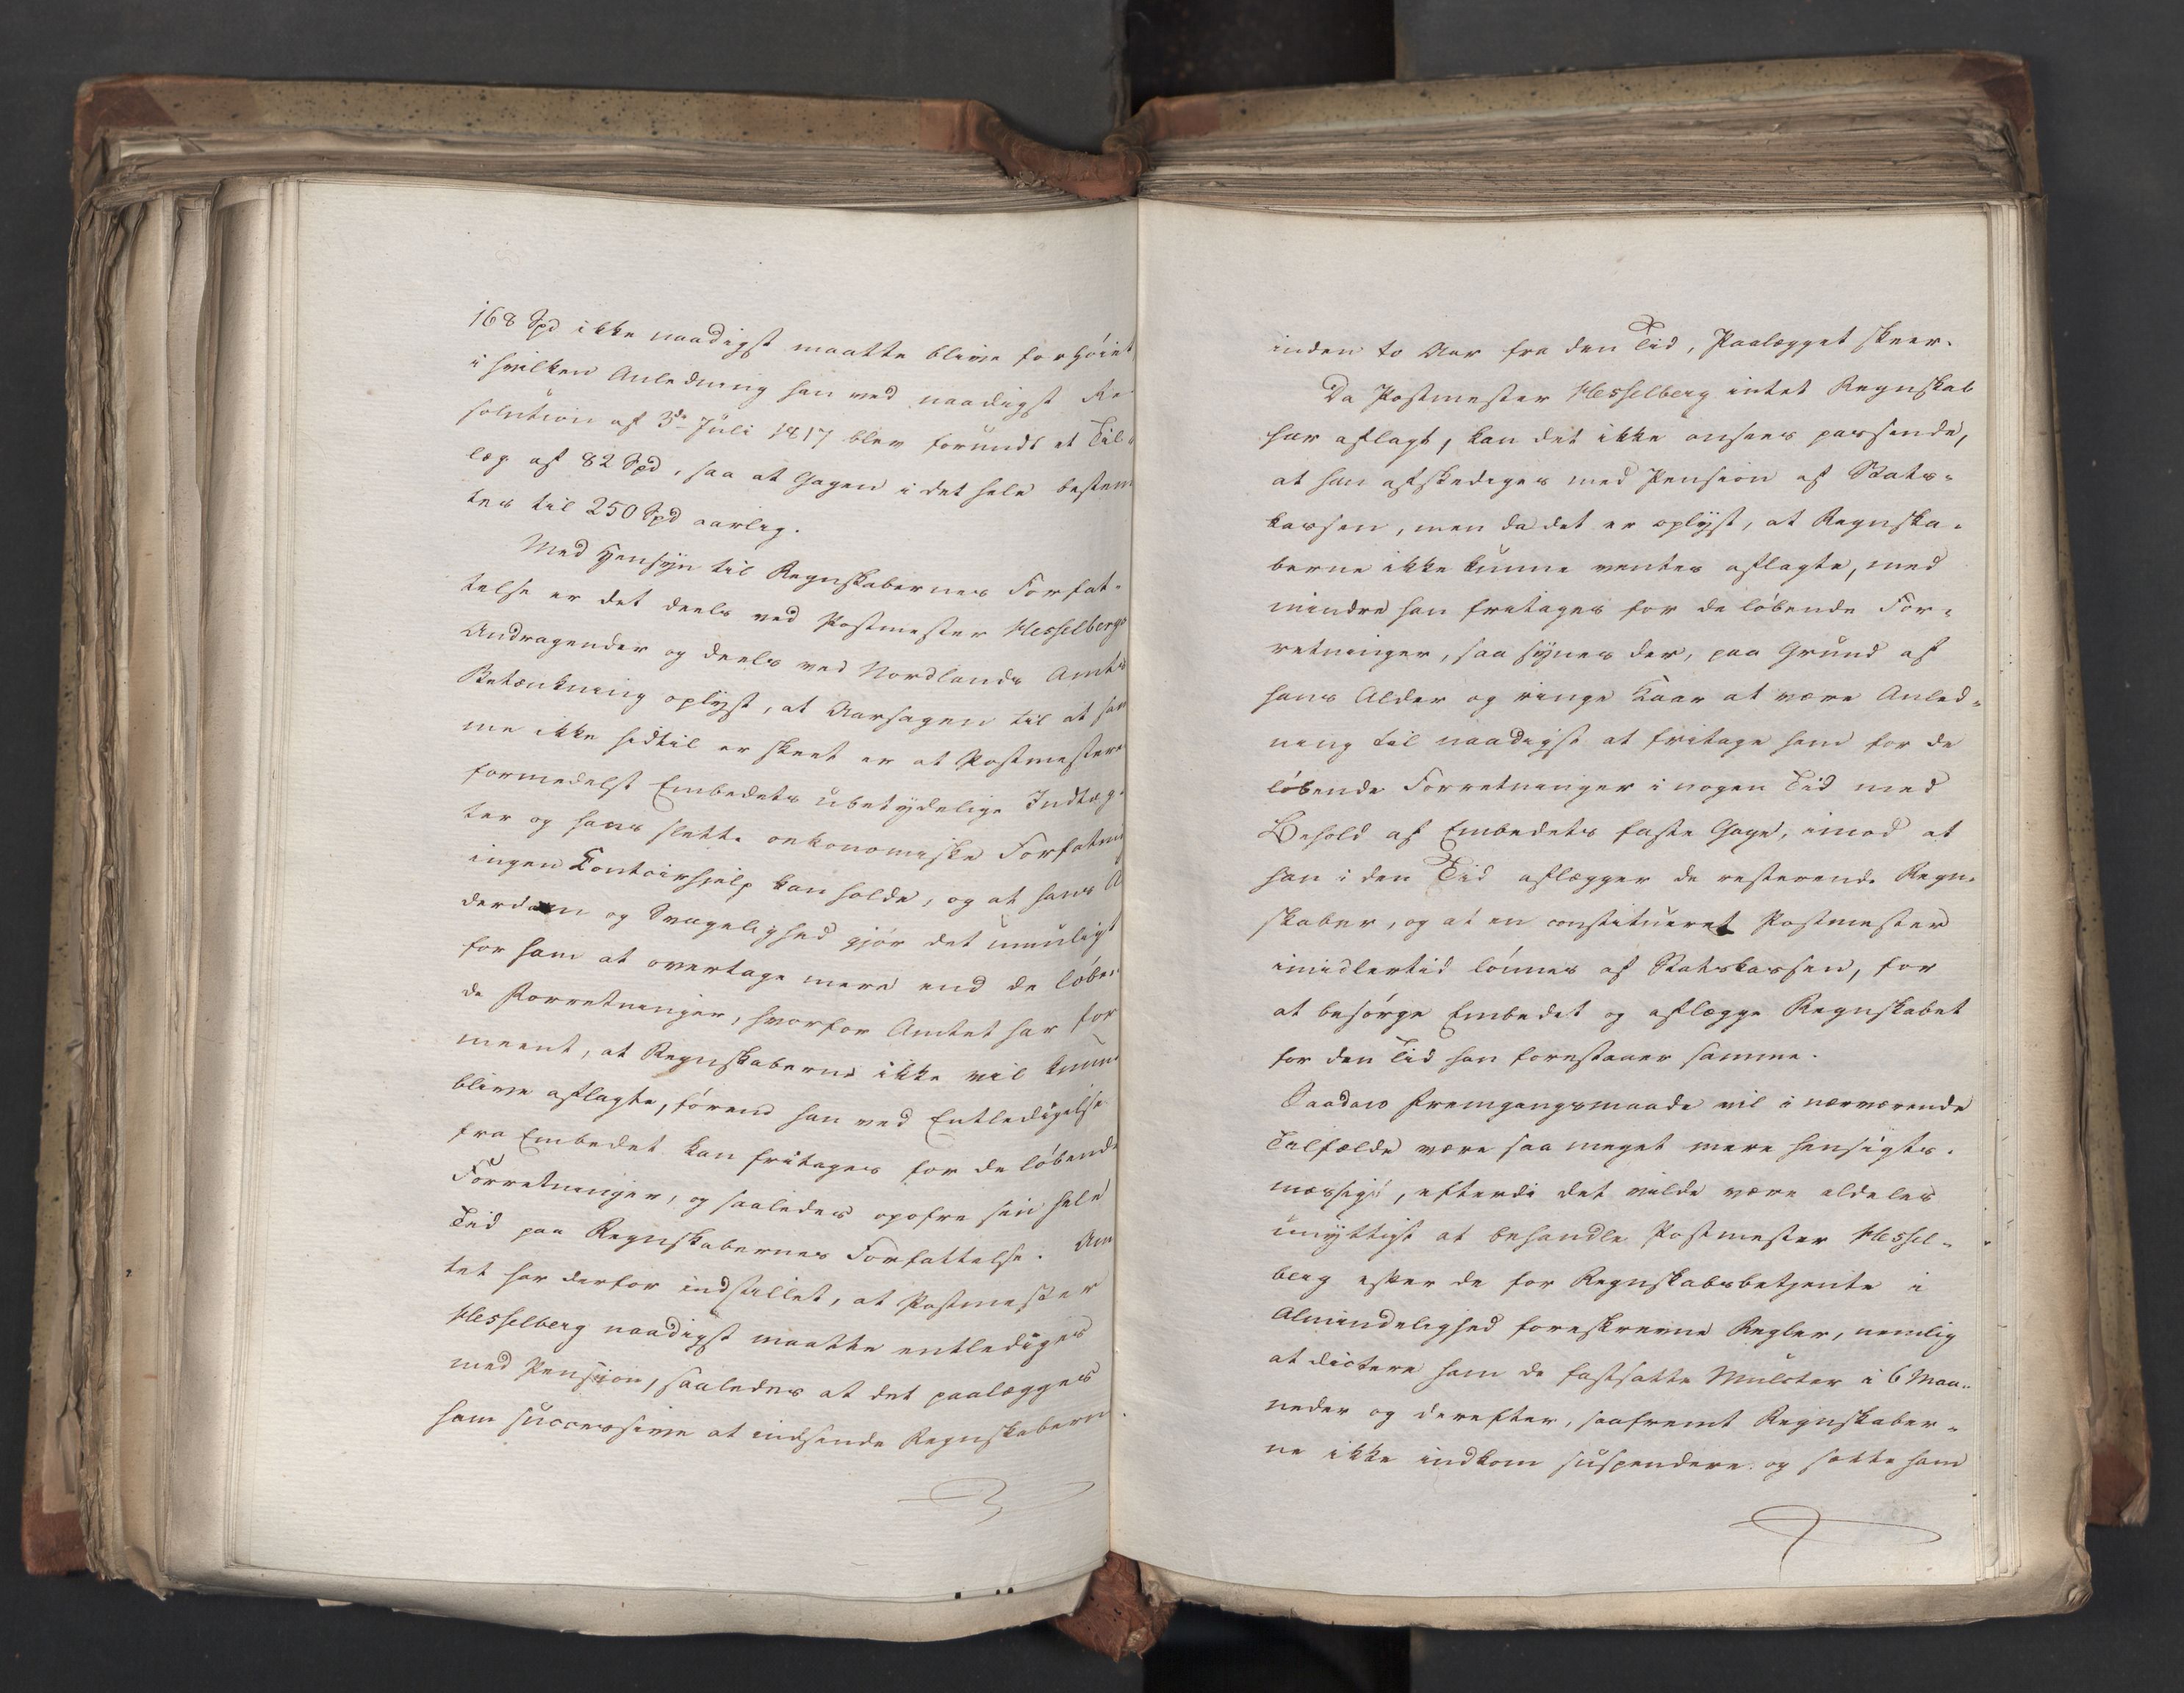 168 Spd ikke naadigst maatte blive forhöiet
i hvilken Anledning han ved naadigst Re-
solution af 3die Juli 1817 blev forundt et Til-
læg af 82 Spd, saa at Gagen i det hele bestem
tes til 250 Spd aarlig.
Med Hensyn til Regnskabernes Forfat-
telse er det deels ved Postmester Hesselbergs
Andragender og deels ved Nordlands Amts
Betænkning oplyst, at Aarsagen til at sam
me ikke hidtil er skeet er at Postmesteren
formedelst Embedets ubetydelige Indtæg-
ter og hans slette oekonomiske Forfatni
ingen Contoirhjelp kan holde, og at hans Al
derdom og Svagelighed gjör det umuligt
for ham at overtage mere end de löben
de Forretninger, hvorfor Amtet har for
meent, at Regnskaberne ikke vil kunne
blive aflagte, förend han ved Entledigelse
fra Embedet kan fritages for de löbende
Forretninger, og saaledes opofre sin hele
Tid paa Regnskabernes Forfattelse. Am
tet har derfor indstillet, at Postmester
Hesselberg naadigst maatte entlediges
med Pension, saaledes at det paalægges
ham successive at indsende Regnskaberne
inden to Aar fra den Tid, Paalægget skeer.
Da Postmester Hesselberg intet Regnskab
har aflagt, kan det ikke ansees passende,
at han afskediges med Pension af Stats-
kassen, men da det er oplyst, at Regnska-
berne ikke kunne ventes aflagte, med
mindre han fritages for de löbende For-
retninger, saa synes der, paa Grund af
hans Alder og ringe Kaar at være Anled-
ning til naadigst at fritage ham for de
löbende Forretninger i nogen Tid med
Behold af Embedets faste Gage, imod at
han i den Tid aflægger de resterende Regn-
skaber, og at en constitueret Postmester
imidlertid lönnes af Statskassen, for
at besörge Embedet og aflægge Regnskabet
for den Tid han forestaaer samme.
Saadan Fremgangsmaade vil i nærværende
Tilfælde være saa meget mere hensigts-
mæssig, efterdi det vilde være aldeles
unyttigt at behandle Postmester Hessel-
berg efter de for Regnskabsbetjente i
Almindelighed foreskrevne Regler, nemlig
at dictere ham de fastsatte Mulcter i 6 Maa-
neder og derefter, saafremt Regnskaber-
ne ikke indkom suspendere og sætte ham